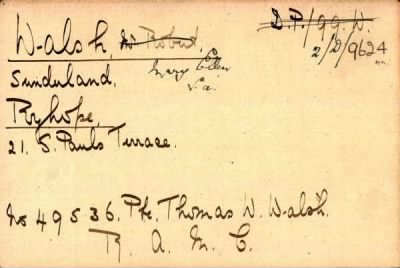 Walsh, Mr Robert, D.P./99.W.
Mary Ellen 2/2/9624
Sunderland,
Ryhope,
21. S. Pauls Terrace.
No 49536. Pte. Thomas W. Walsh.
R. A. M. C.